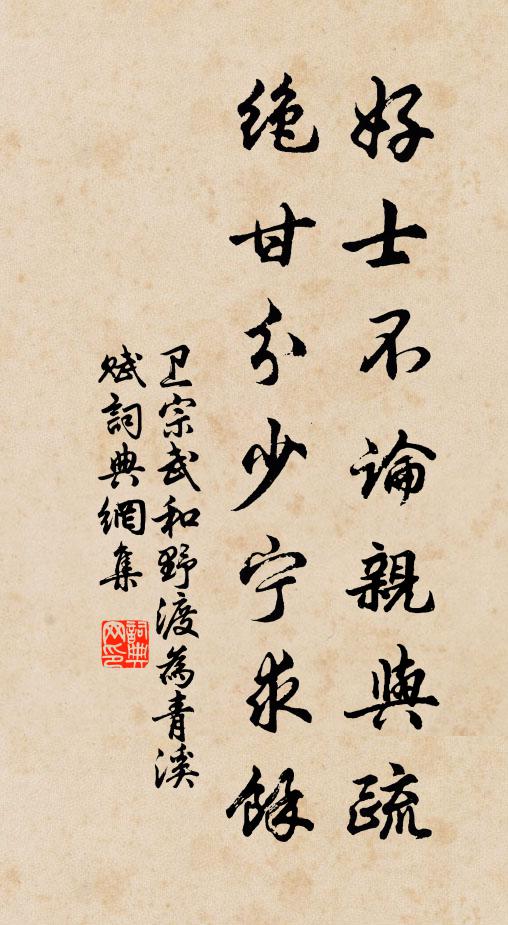 好士不論親與疏
絶甘分少宁求餘
卫宗武和野渡為青溪
賦詞典網集
詞典
网印